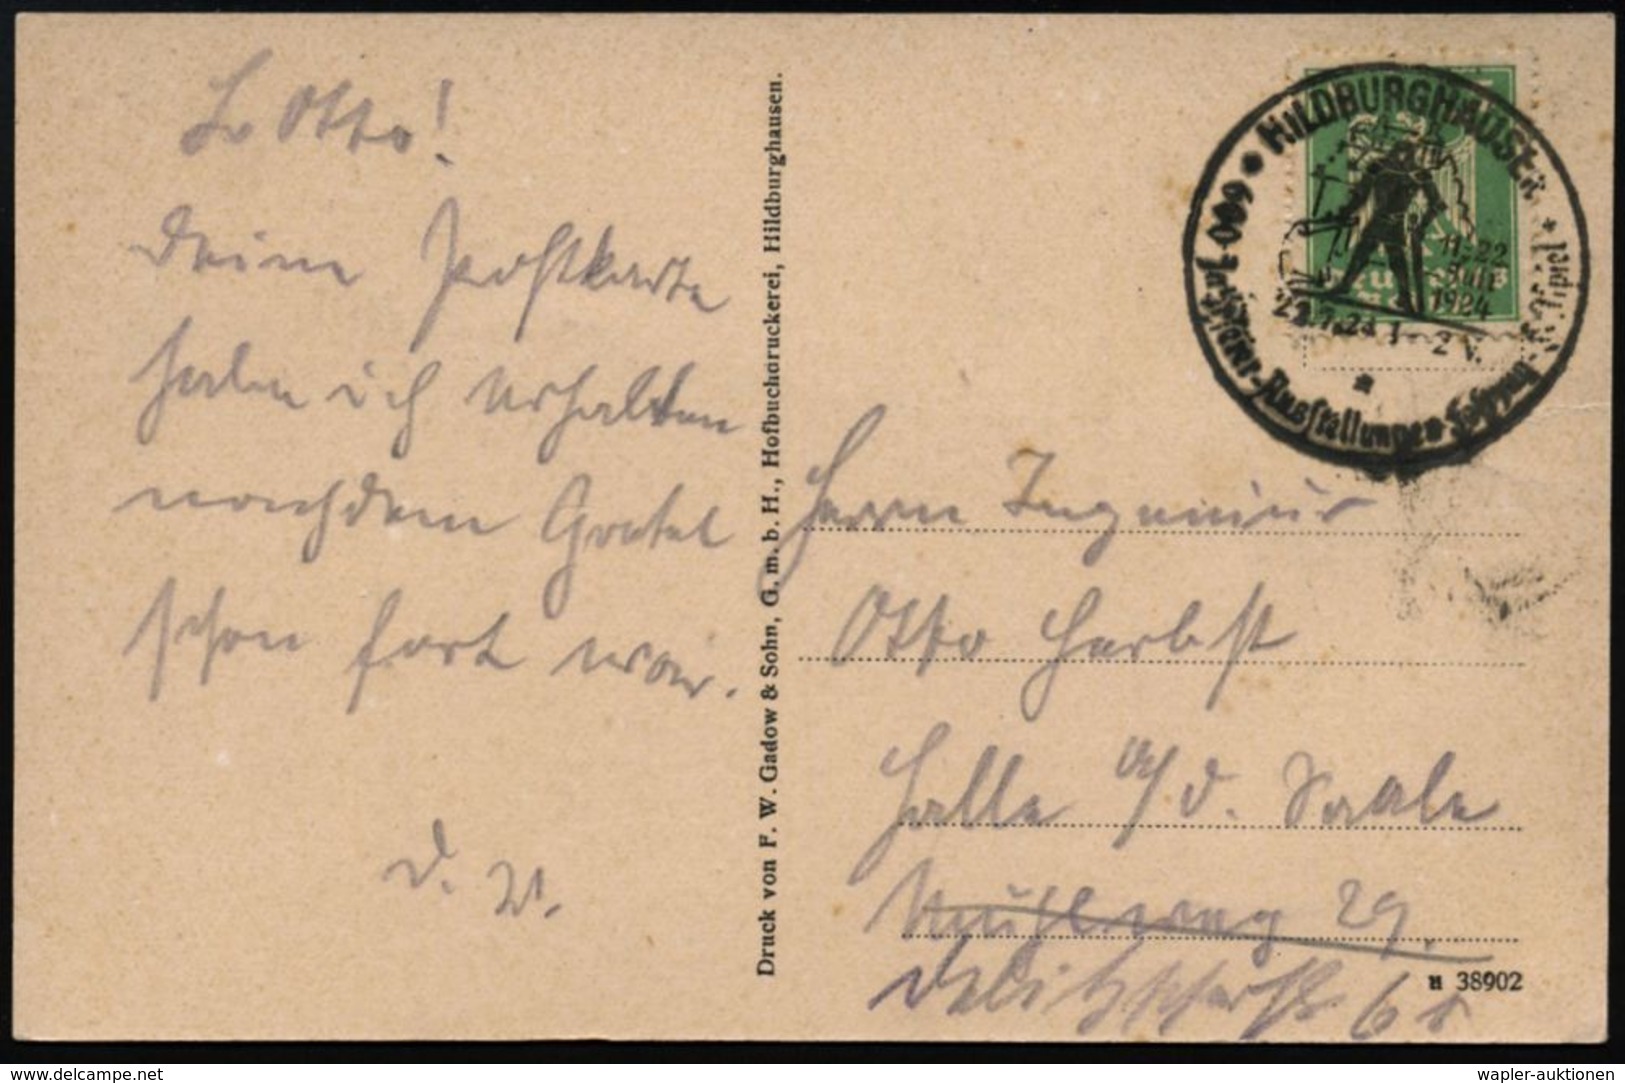 L. Otto!
Deine Postkarte
habe ich erhalten
nachdem Gretel
schon fort war.
D. V.
Druck von F. W. Gadow & Sohn, G. m. b. H., Hofbuchdruckerei, Hildburghausen.
HILDBURGHAUSEN
600 Jahrfeier-Ausstellungen-Festzug-Festspiel
11.-22.
Juli
1924
22.7.24 1-2 V.
Herrn Ingenieur
Otto Herbst
Halle a/d. Saale
Mühlweg 29.
Delitzscherstr 6
H 38902
wapler-auktionen
www.delcampe.net